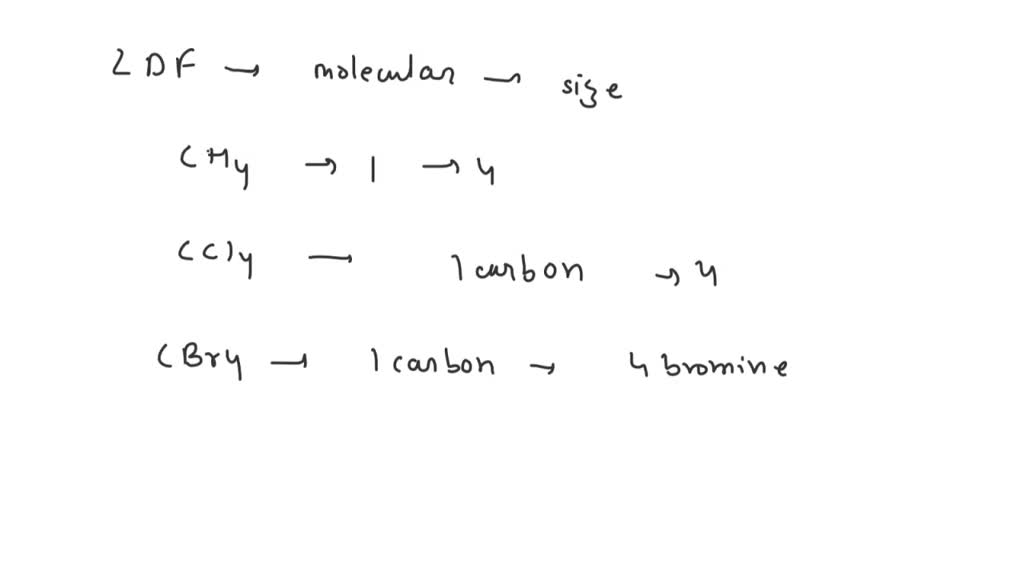 LDF → molecular → size
CH4 → 1 → 4
CCl4 — 1 carbon → 4
CBr4 → 1 carbon → 4 bromine